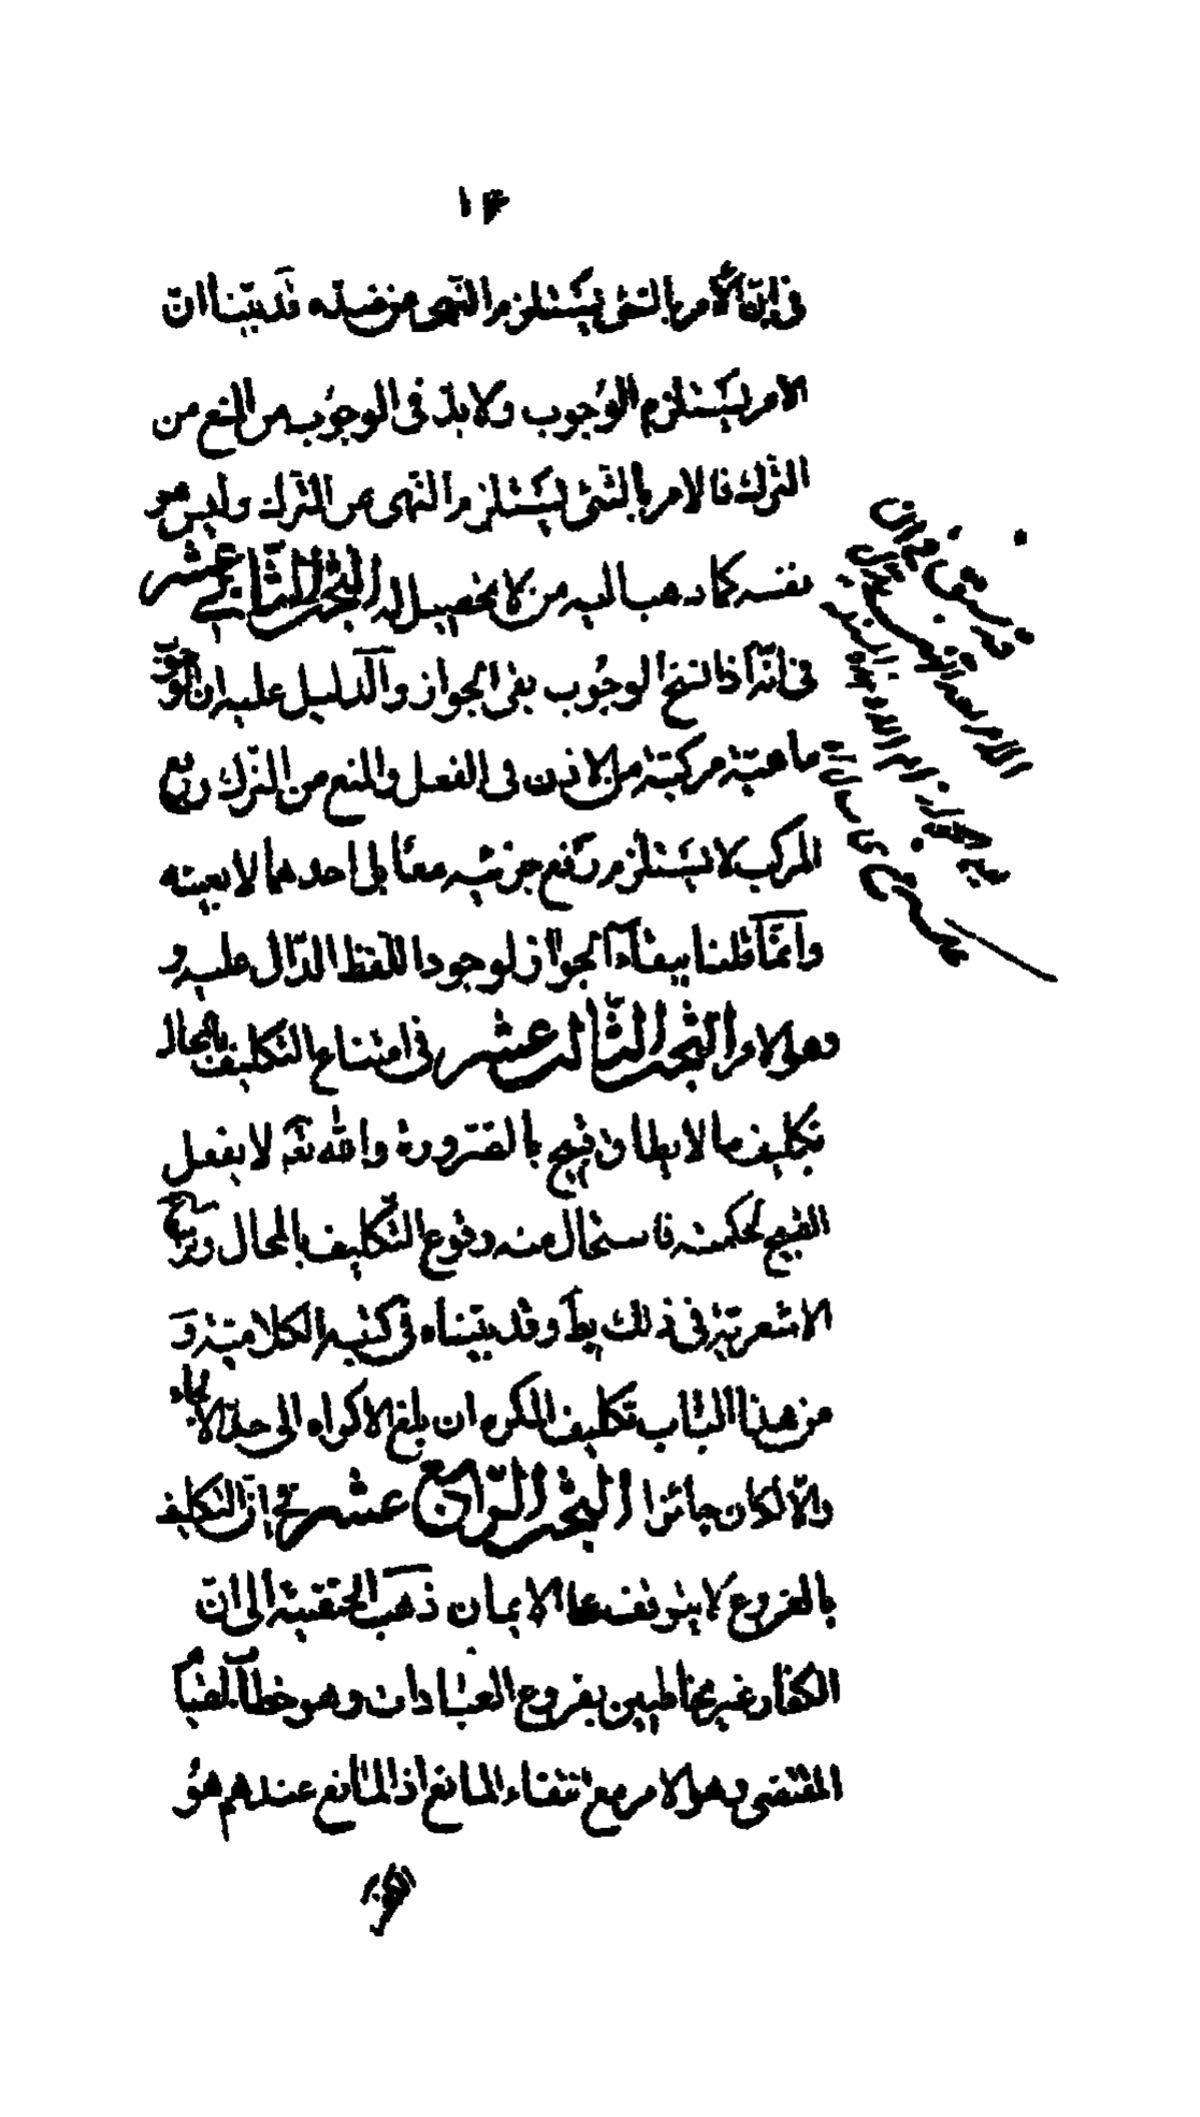 ۱۴
فى انّ الأمر بالشئ يستلزم النّهى عن ضدّه قد بيّنا انّ
الامر يستلزم الوجوب ولا بدّ فى الوجوب من المنع من
الترك فالامر بالشئ يستلزم النّهى عن الترك وليس هو
نفسه كما ذهب اليه من لا تحصيل له البحث الثانى عشر
فى انّه اذا نسخ الوجوب بقى الجواز والدليل عليه ان الوجوب
ماهيّة مركبّة من الاذن فى الفعل والمنع من الترك ورفع
المركب لا يستلزم رفع جزئيه معًا بل احدهما لا بعينه
وانّما قلنا ببقاء الجواز لوجود اللفظ الدّال عليه و
هو الامر البحث الثالث عشر فى امتناع التكليف بالمحال
تكليف ما لا يطاق قبيح بالضّرورة والله تعّه لا يفعل
القبيح لحكمته فاستحال منه وقوع التّكليف بالمحال ونزاع
الاشعريّة فى ذلك بط وقد بيّنّاه فى كتبه الكلاميّة و
من هذا الباب تكليف المكره ان بلغ الاكراه الى حدّ الالجاء
والّا لكان جائزا البحث الرّابع عشر فى انّ التكليف
بالفروع لا يتوقف على الايمان ذهب الحنفيّة الى انّ
الكفّار غير مخاطبين بفروع العبادات وهو خطأ لقيام
المقتضى وهو الامر مع انتفاء المانع اذ المانع عندهم هو
الكفر